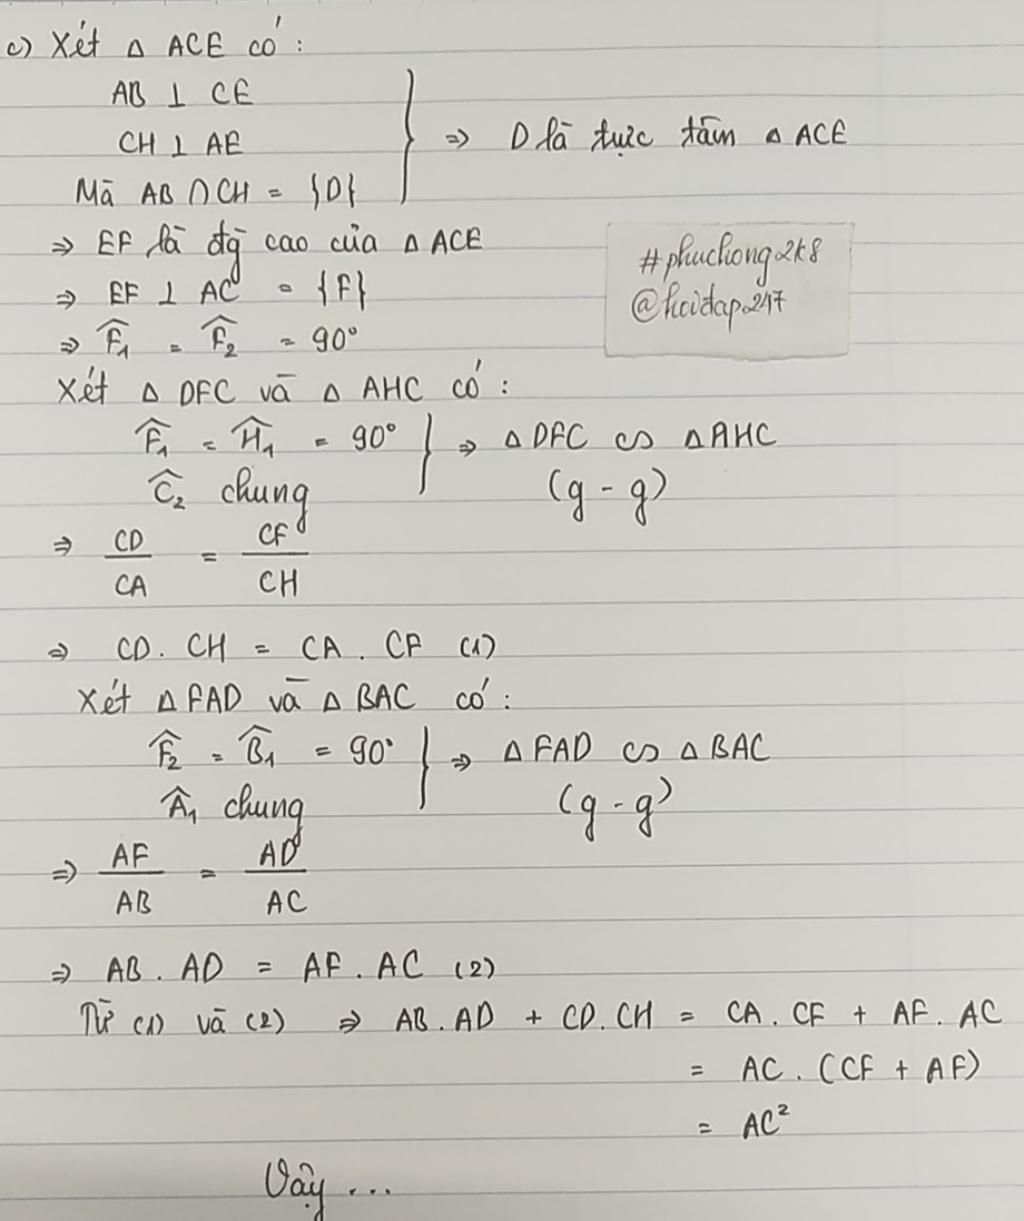 c) Xét Δ ACE có:
AB ⊥ CE
CH ⊥ AE
Mà AB ∩ CH = {D}
} ⇒ D là trực tâm Δ ACE
⇒ EF là đg cao của Δ ACE
⇒ EF ⊥ AC = {F}
⇒ F̂₁ = F̂₂ = 90°
#phuchong2k8
@hoidap247
Xét Δ DFC và Δ AHC có:
F̂₁ = Ĥ₁ = 90°
Ĉ₂ chung
} ⇒ Δ DFC ∽ Δ AHC
(g - g)
⇒ CD/CA = CF/CH
⇒ CD . CH = CA . CF (1)
Xét Δ FAD và Δ BAC có:
F̂₂ = B̂₁ = 90°
Â₁ chung
} ⇒ Δ FAD ∽ Δ BAC
(g - g)
⇒ AF/AB = AD/AC
⇒ AB . AD = AF . AC (2)
Từ (1) và (2) ⇒ AB . AD + CD . CH = CA . CF + AF . AC
= AC . (CF + AF)
= AC²
Vậy ...